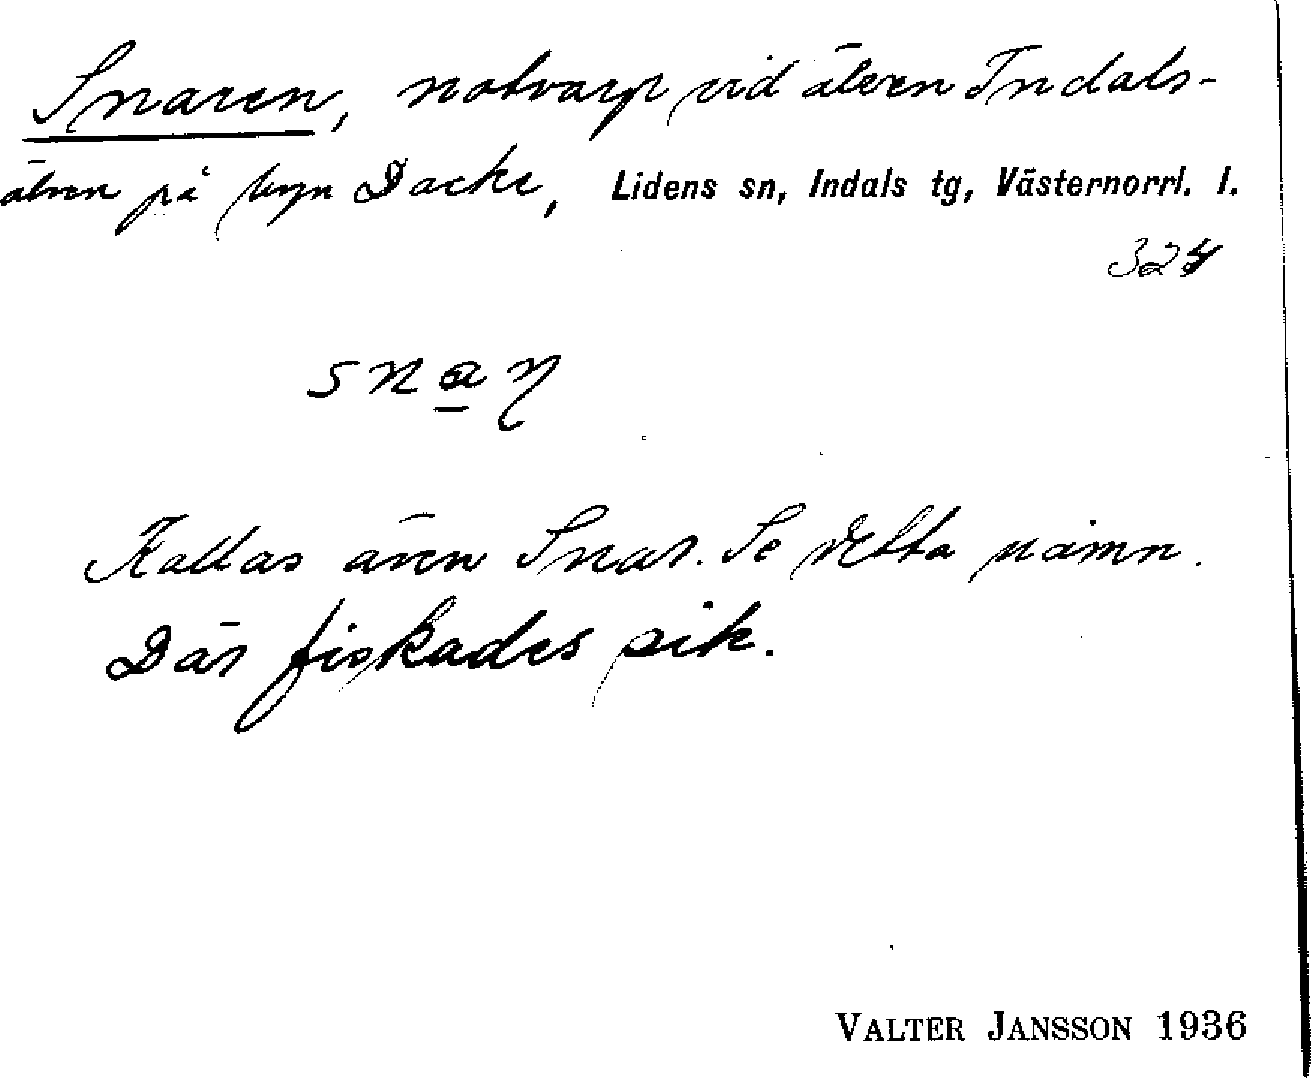 Snaren, notvarp vid älven Indals-
älven på byn Dacke, Lidens sn, Indals tg, Västernorrl. l.
324
Kallas även Snar. Se detta namn.
Där fiskades sik.
VALTER JANSSON 1936